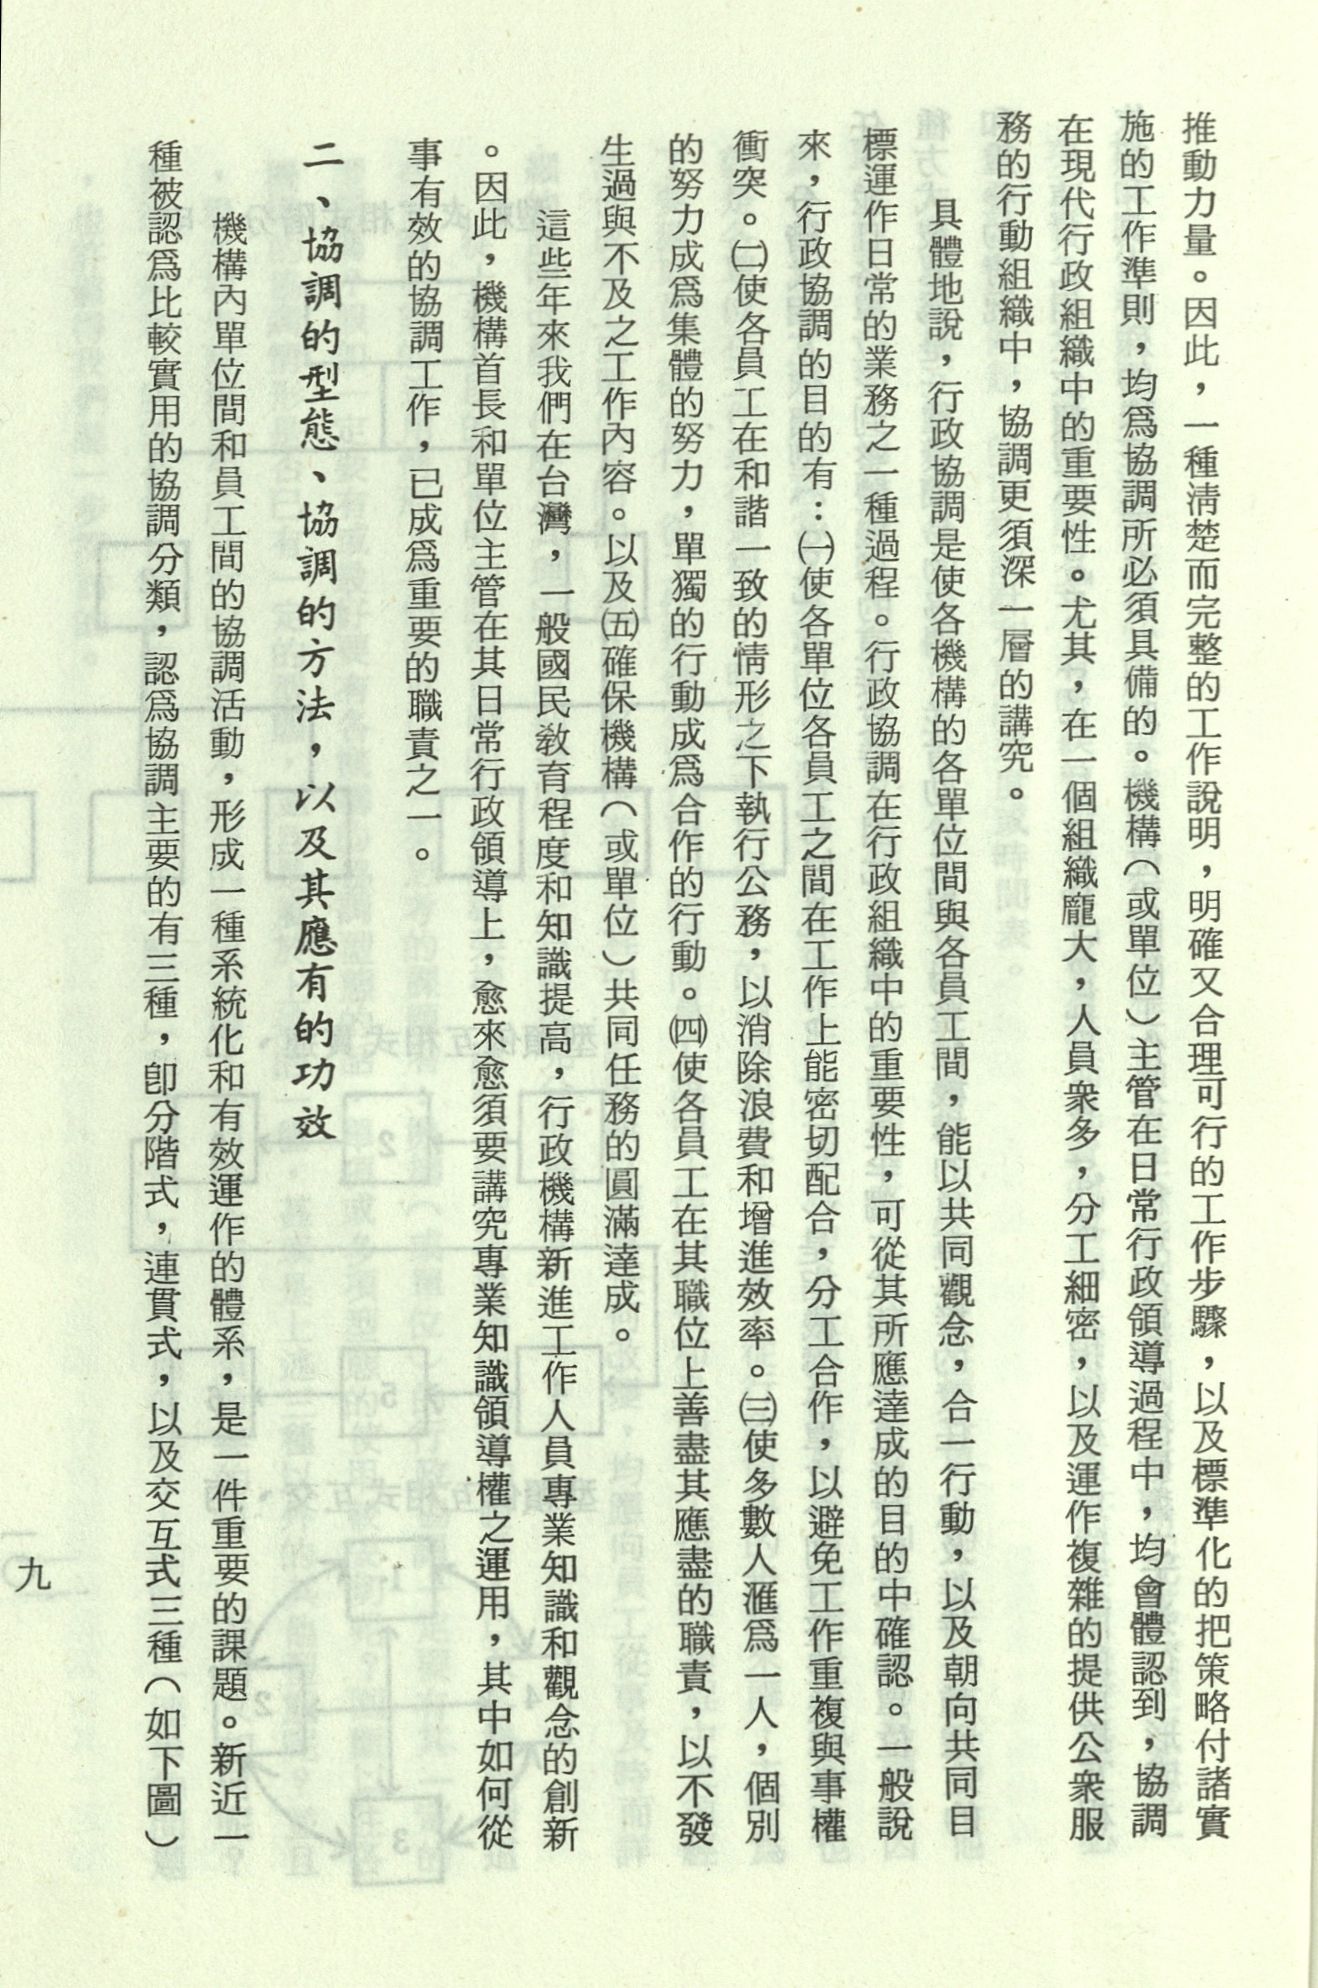 推動力量。因此，一種淸楚而完整的工作說明，明確又合理可行的工作步驟，以及標準化的把策略付諸實
施的工作準則，均爲協調所必須具備的。機構（或單位）主管在日常行政領導過程中，均會體認到，協調
在現代行政組織中的重要性。尤其，在一個組織龐大，人員衆多，分工細密，以及運作複雜的提供公衆服
務的行動組織中，協調更須深一層的講究。
具體地說，行政協調是使各機構的各單位間與各員工間，能以共同觀念，合一行動，以及朝向共同目
標運作日常的業務之一種過程。行政協調在行政組織中的重要性，可從其所應達成的目的中確認。一般說
來，行政協調的目的有：㈠使各單位各員工之間在工作上能密切配合，分工合作，以避免工作重複與事權
衝突。㈡使各員工在和諧一致的情形之下執行公務，以消除浪費和增進效率。㈢使多數人滙爲一人，個別
的努力成爲集體的努力，單獨的行動成爲合作的行動。㈣使各員工在其職位上善盡其應盡的職責，以不發
生過與不及之工作內容。以及㈤確保機構（或單位）共同任務的圓滿達成。
這些年來我們在台灣，一般國民敎育程度和知識提高，行政機構新進工作人員專業知識和觀念的創新
。因此，機構首長和單位主管在其日常行政領導上，愈來愈須要講究專業知識領導權之運用，其中如何從
事有效的協調工作，已成爲重要的職責之一。
二、協調的型態、協調的方法，以及其應有的功效
機構內單位間和員工間的協調活動，形成一種系統化和有效運作的體系，是一件重要的課題。新近一
種被認爲比較實用的協調分類，認爲協調主要的有三種，卽分階式，連貫式，以及交互式三種（如下圖）
九